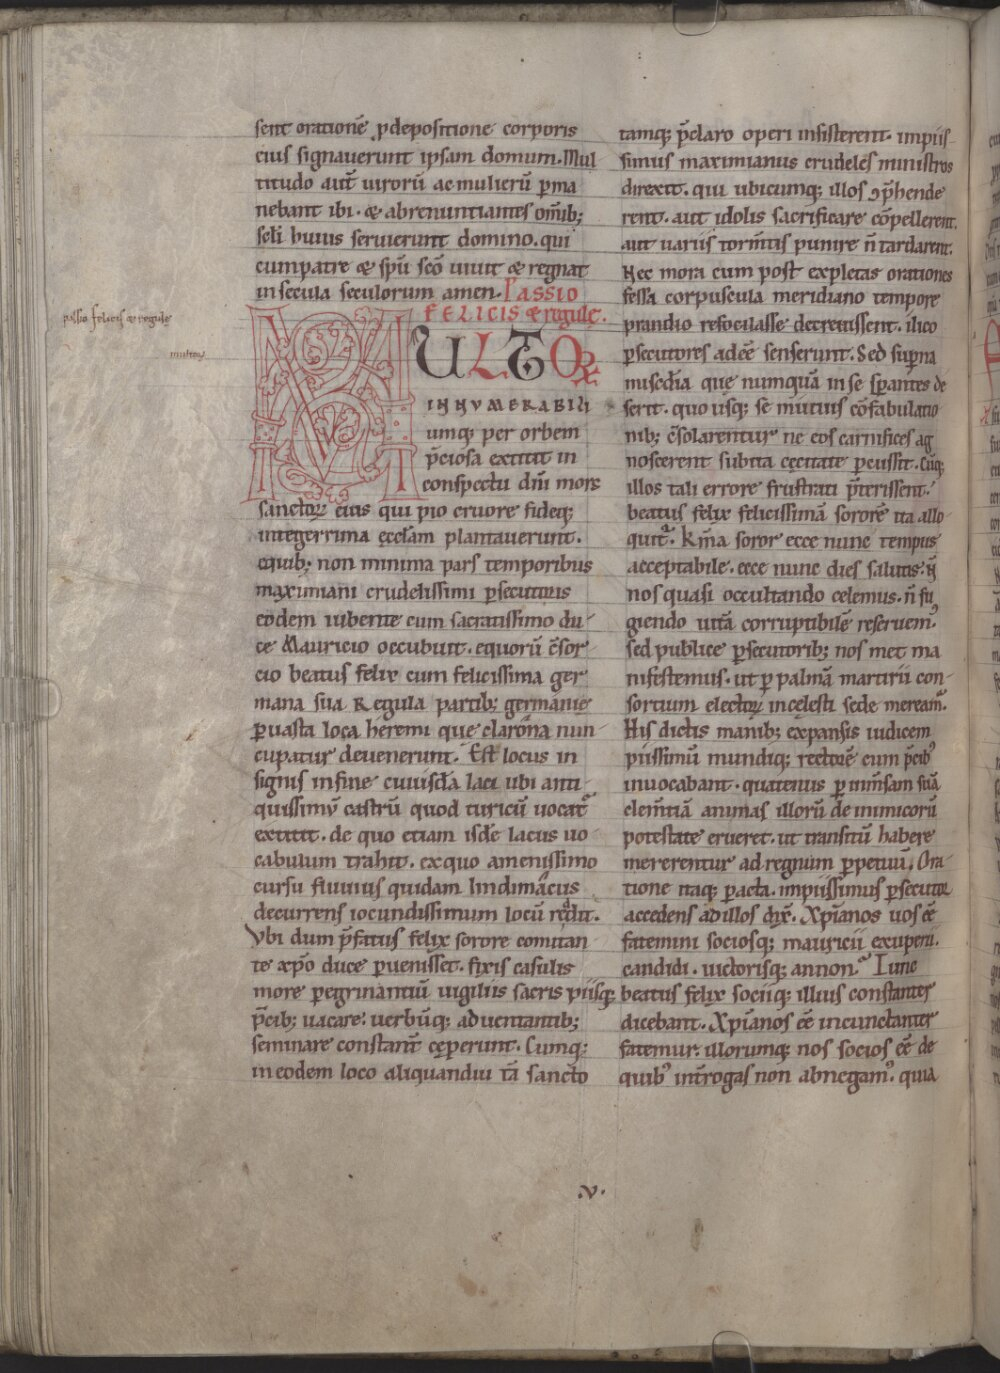 sent orationē ꝓdepositione corporis
eius signauerunt ipsam domum. Mul
titudo aut̄ uirorū ac mulierū ꝑma
nebant ibi. & abrenuntiantes om̄ib;
seli huius seruierunt domino. qui
cum patre & sp̄u sc̄o uiuit & regnat
in secula seculorum amen. Passio
FELICIS & regulę.
passio felicis & regule
MULTOꝜ
multoꝝ
INNUMERABILI
umq; per orbem
p̄ciosa extitit in
conspectu dn̄i mors
sanctoꝝ eius qui pio cruore fideq;
integerrima ęcclām plantauerunt.
equib; non minima pars temporibus
maximiani crudelissimi ꝑsecutoris
eodem iubente cum sacratissimo du-
ce Mauricio occubuit. equorū c̄sor
cio beatus felix cum felicissima ger
mana sua Regula partib; germanie
ꝑuasta loca heremi que clarona nun
cupatur deuenerunt. Est locus in
signis in fine cuiusdā laci ubi anti
quissimū castrū quod turicū uocat᷑
extitit. de quo etiam isdē lacus uo
cabulum trahit. exquo amenissimo
cursu fluuius quidam lindimacus
decurrens iocundissimum locū reddit.
Vbi dum p̄fatus felix sorore comitan
te xp̄o duce ꝑuenisset. fixis casulis
more ꝑegrinantiū uigiliis sacris piisq;
p̄cib; uacare. uerbūq; aduentantib;
seminare constant̄ cęperunt. Cumq;
in eodem loco aliquandiu tā sancto
tamq; p̄claro operi insisterent. impiis-
simus maximianus crudeles ministros
direxit. qui ubicumq; illos ꝯp̄hende
rent. aut idolis sacrificare cōpellerent.
aut uariis torm̄tis punire n̄ tardarent.
Nec mora cum post expletas orationes
fessa corpuscula meridiano tempore
prandio refocilasse decreuissent. ilico
ꝑsecutores adeē senserunt. Sed sup̄na
mis̄cdia que numquā in se sꝑantes de
serit. quo usq; se mutuis cōfabulatio
nib; c̄solarentur ne eos carnifices ag
noscerent subita cęcitate ꝑcussit. Cūq;
illos tali errore frustrati p̄terissent.
beatus felix felicissimā sororē ita allo
quit᷑. Km̄a soror ecce nunc tempus
acceptabile. ecce nunc dies salutis. n̄
nos quasi occultando celemus. n̄ fu
giendo uitā corruptibilē reseruem᷒.
sed publice ꝑsecutorib; nos met ma
nifestemus. ut ꝑ palmā martirii con-
sortium electoꝝ in cęlesti sede meream᷑.
His dictis manib; expansis iudicem
piissimū mundiq; rectorē cum p̄cib᷒
inuocabant. quatenus ꝑ inm̄sam suā
clem̄tiā animas illorū de inimicorū
potestate erueret. ut transitū habere
mererentur ad regnum ꝑpetuū. Ora-
tione itaq; ꝑacta. impiissimus ꝑsecutor
accedens ad illos dix̄. Xp̄ianos uos eē
fatemini sociosq; mauricii exuperii.
candidi. uictorisq; an non. Tunc
beatus felix sociiq; illius constanter
dicebant. Xp̄ianos eē incunctanter
fatemur. illorumq; nos socios eē de
quib᷒ int̄rogas non abnegam᷒. quia
.V.